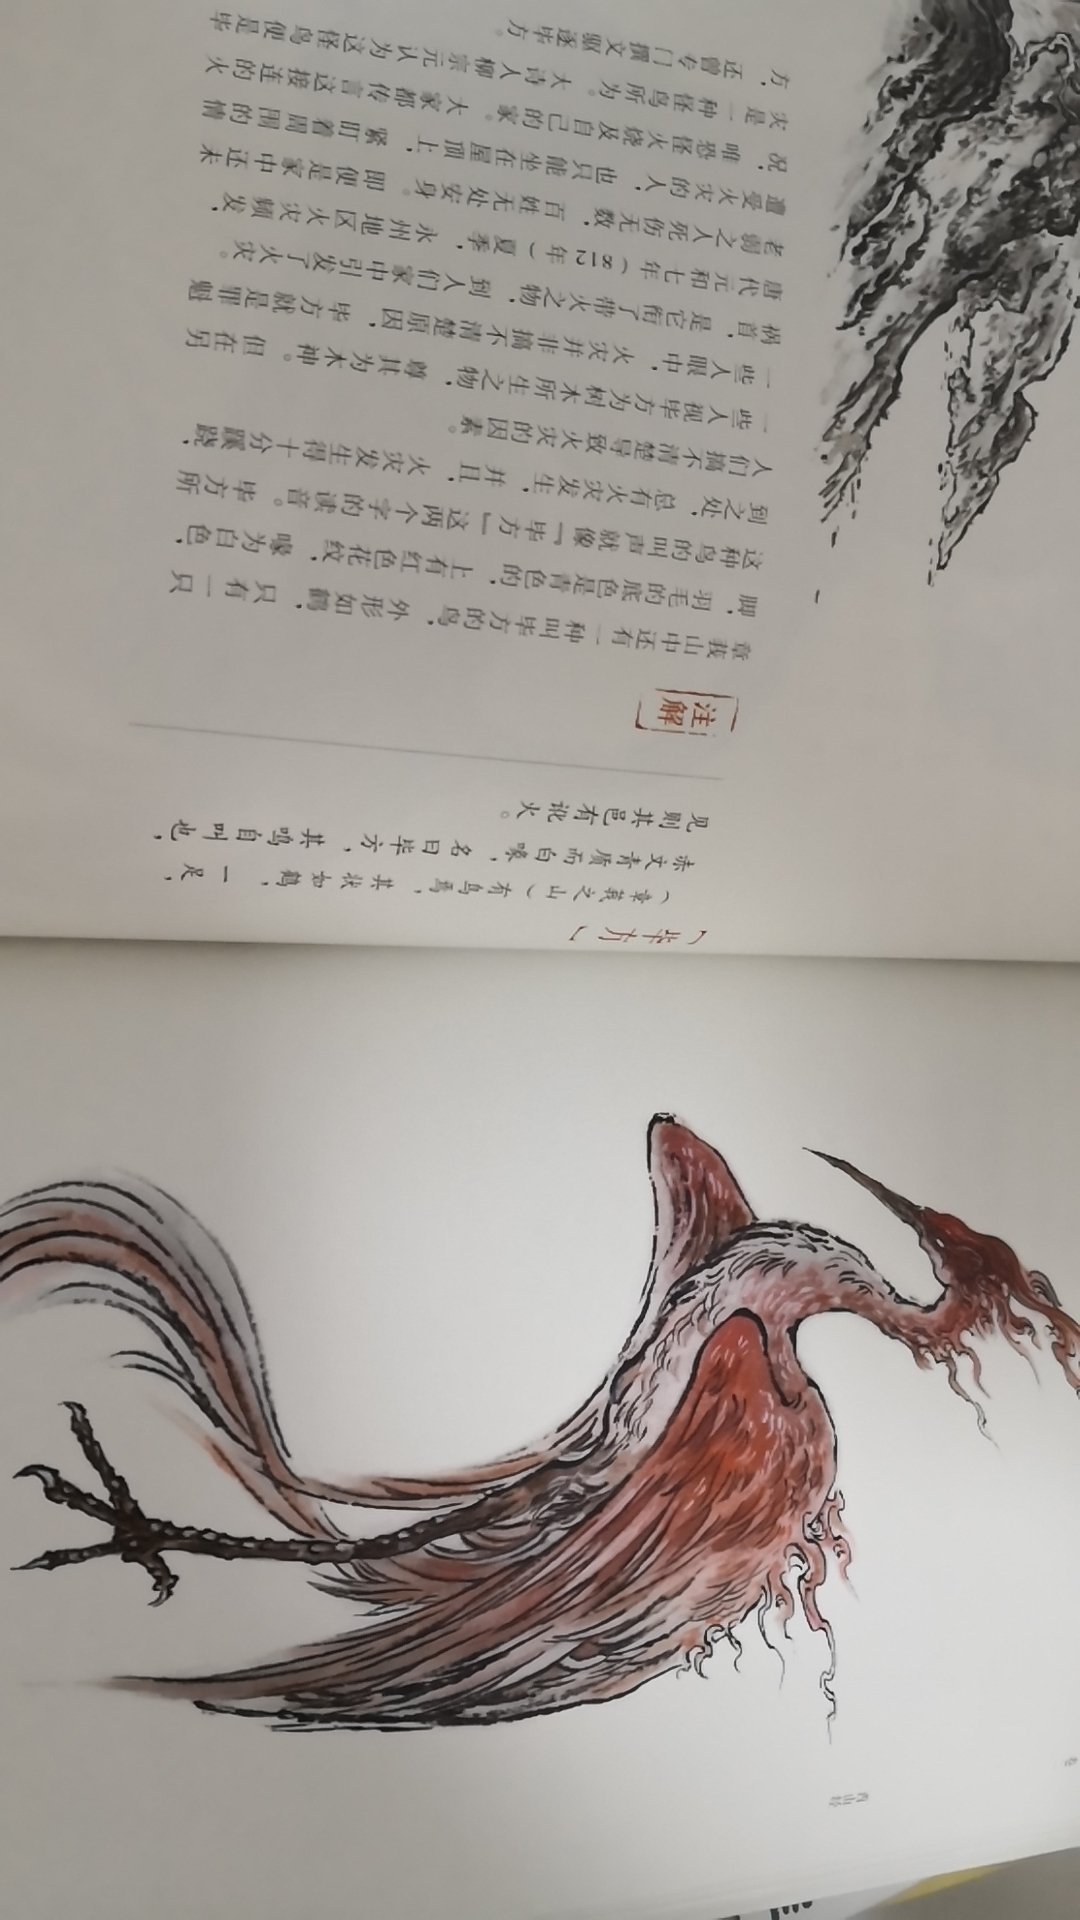 【毕方】
（章莪之山）有鸟焉，其状如鹤，一足，
赤文青质而白喙，名曰毕方，其鸣自叫也，
见则其邑有讹火。
注解
章莪山中还有一种叫毕方的鸟，外形如鹤，只有一只
脚，羽毛的底色是青色的，上有红色花纹，喙为白色，
这种鸟的叫声就像“毕方”这两个字的读音。毕方所
到之处，总有火灾发生，并且，火灾发生得十分蹊跷，
人们搞不清楚导致火灾的因素。
一些人视毕方为树木所生之物，尊其为木神。但在另
一些人眼中，火灾并非搞不清楚原因，毕方就是罪魁
祸首，是它衔了带火之物，到人们家中引发了火灾。
唐代元和七年（812年）夏季，永州地区火灾频发，
老弱之人死伤无数，百姓无处安身。即便是家中还未
遭受火灾的人，也只能坐在屋顶上，紧盯着周围的情
况，唯恐怪火烧及自己的家。大家都传言这接连的火
灾是一种怪鸟所为。大诗人柳宗元认为这怪鸟便是毕
方，还曾专门撰文驱逐毕方。
西山经